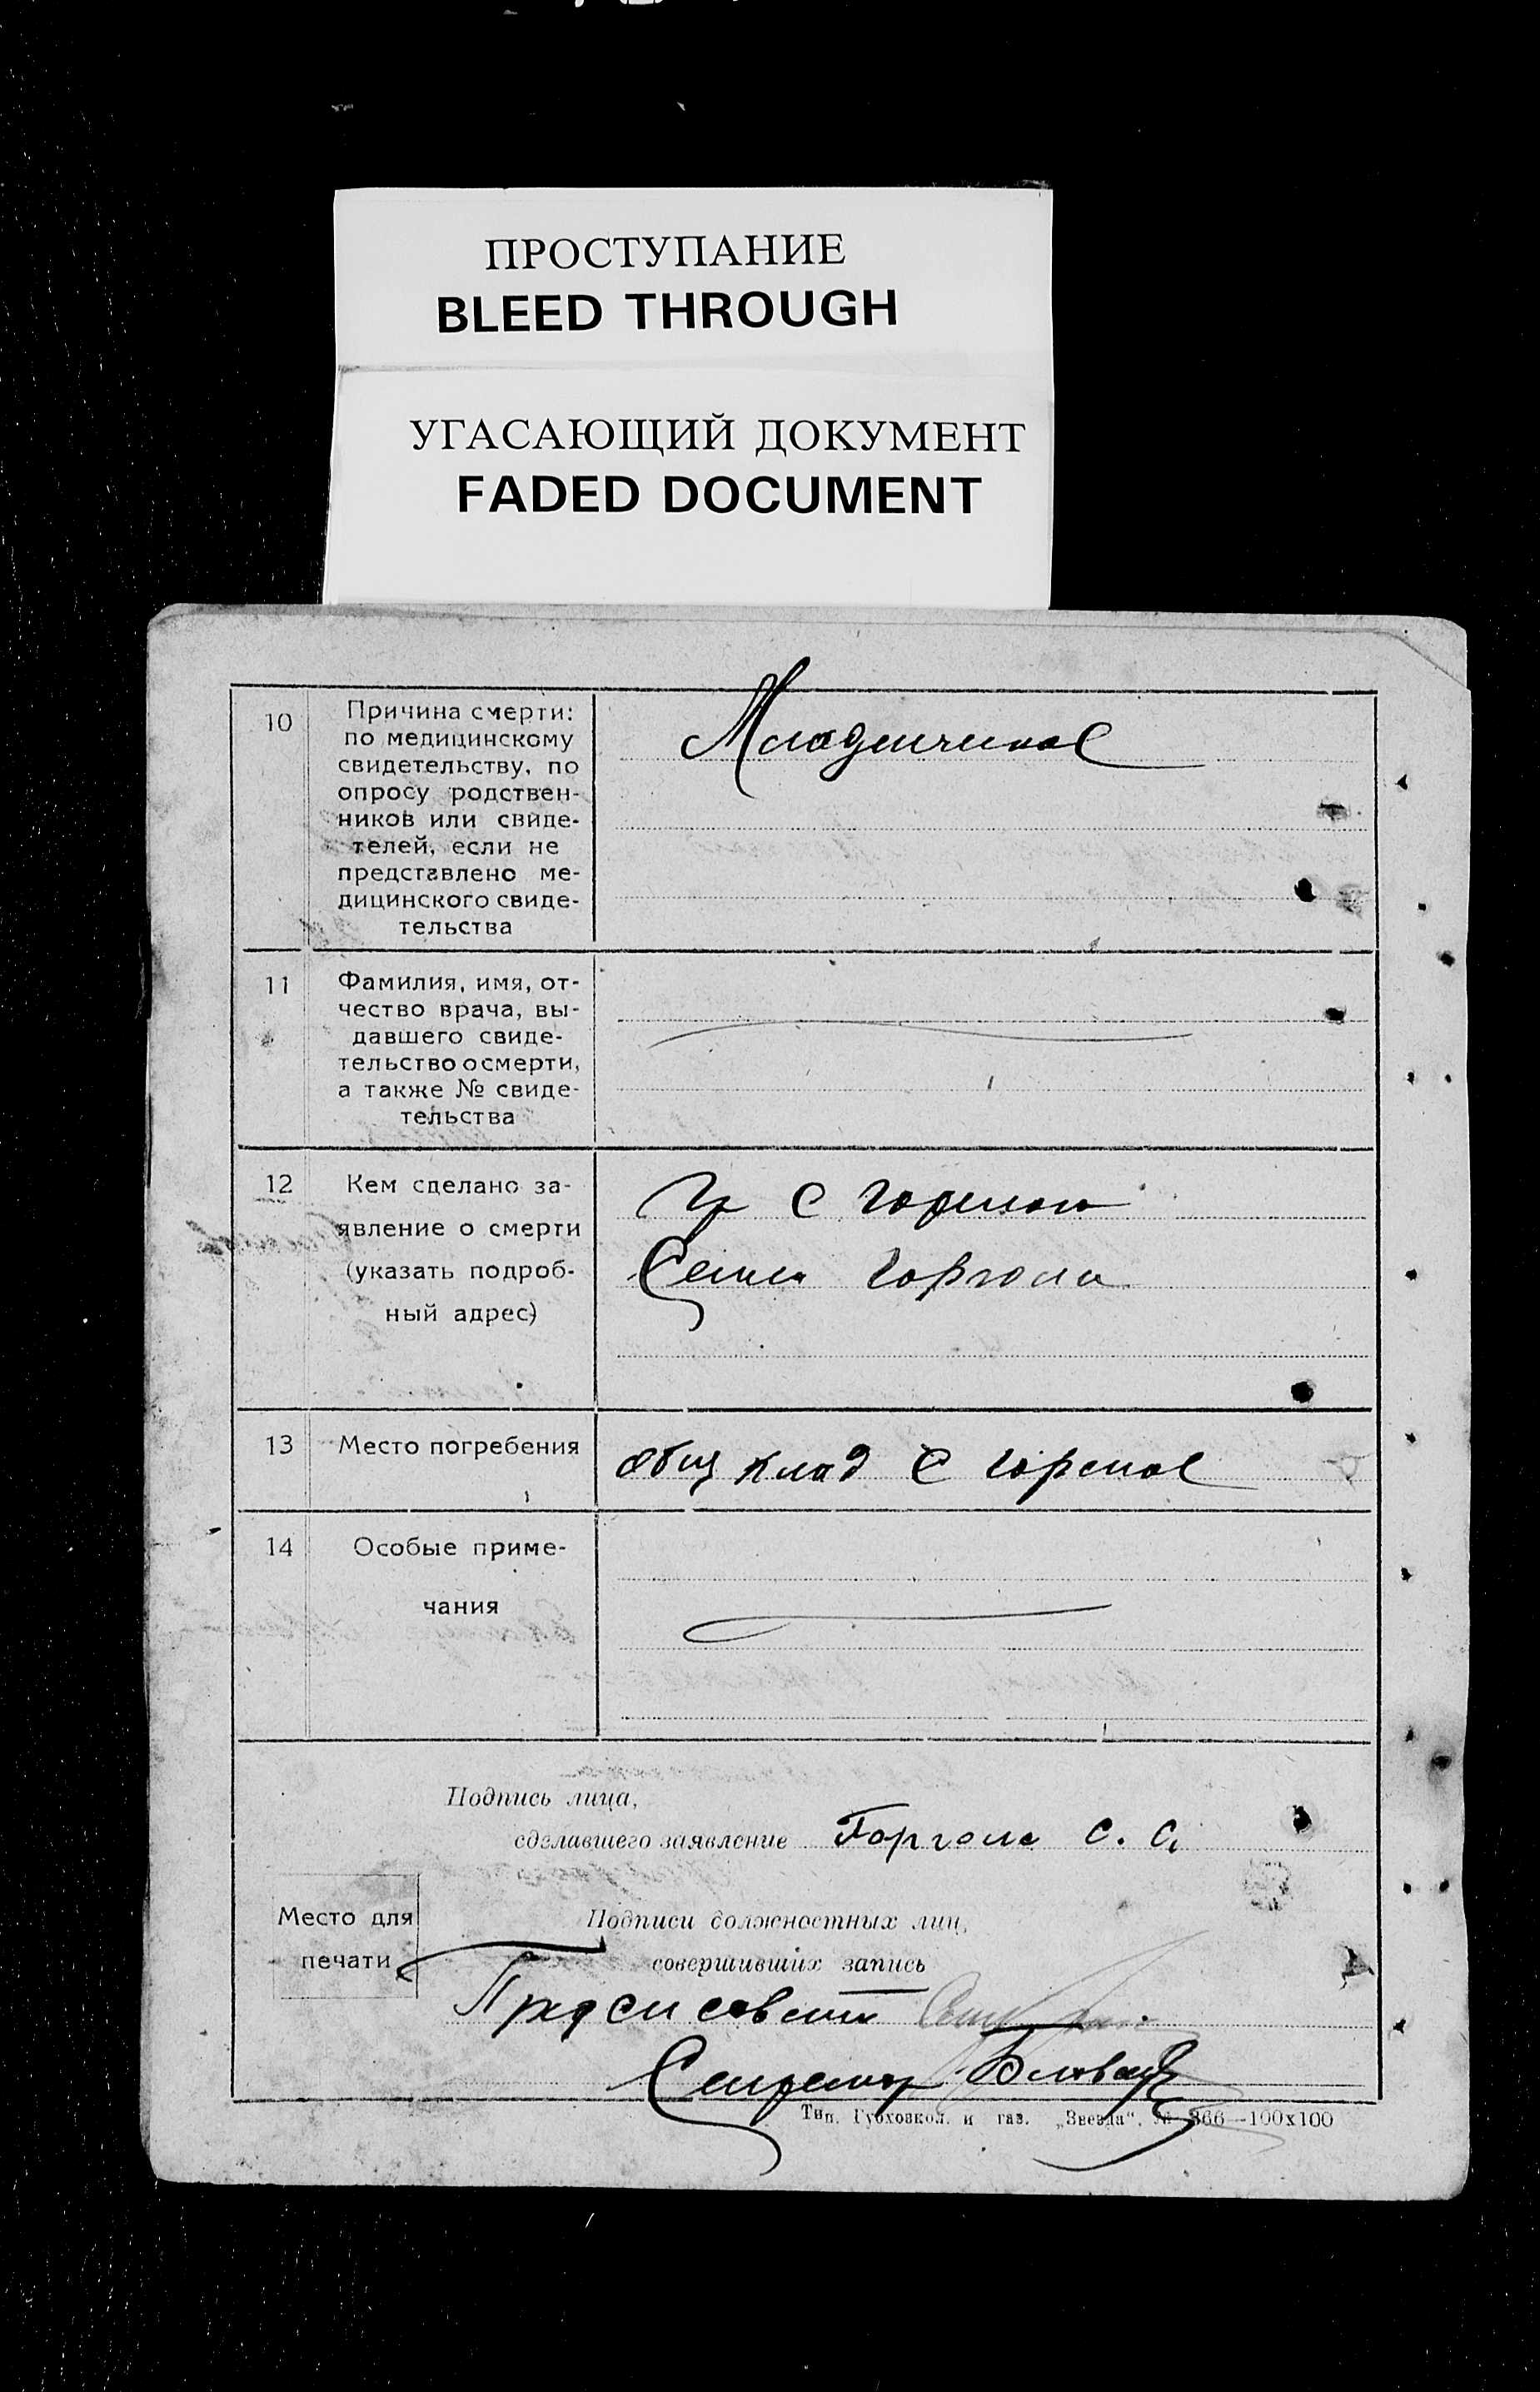 ПРОСТУПАНИЕ
BLEED THROUGH
УГАСАЮЩИЙ ДОКУМЕНТ
FADED DOCUMENT
10
Причина смерти:
по медицинскому
свидетельству, по
опросу родствен-
ников или свиде-
телей, если не
представлено ме-
дицинского свиде-
тельства
Младенческое
11
Фамилия, имя, от-
чество врача, вы-
давшего свиде-
тельство о смерти,
а также № свиде-
тельства
12
Кем сделано за-
явление о смерти
(указать подроб-
ный адрес)
Гр С Горского
Семен Горгола
13
Место погребения
общ клад С Горское
14
Особые приме-
чания
Подпись лица,
сделавшего заявление Горгола С. С.
Место для
печати
Подписи должностных лиц,
совершивших запись
Пред сисовета
Секретар
Тип. Губхозкол. и газ. „Звезда", № 366—100х100